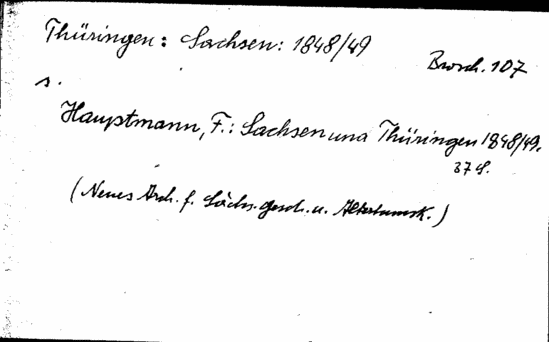 Thüringen: Sachsen: 1848/49
Brosch. 107
s.
Hauptmann, F.: Sachsen und Thüringen 1848/49.
37 S.
(Neues Arch. f. Sächs. Gesch. u. Altertumsk.)